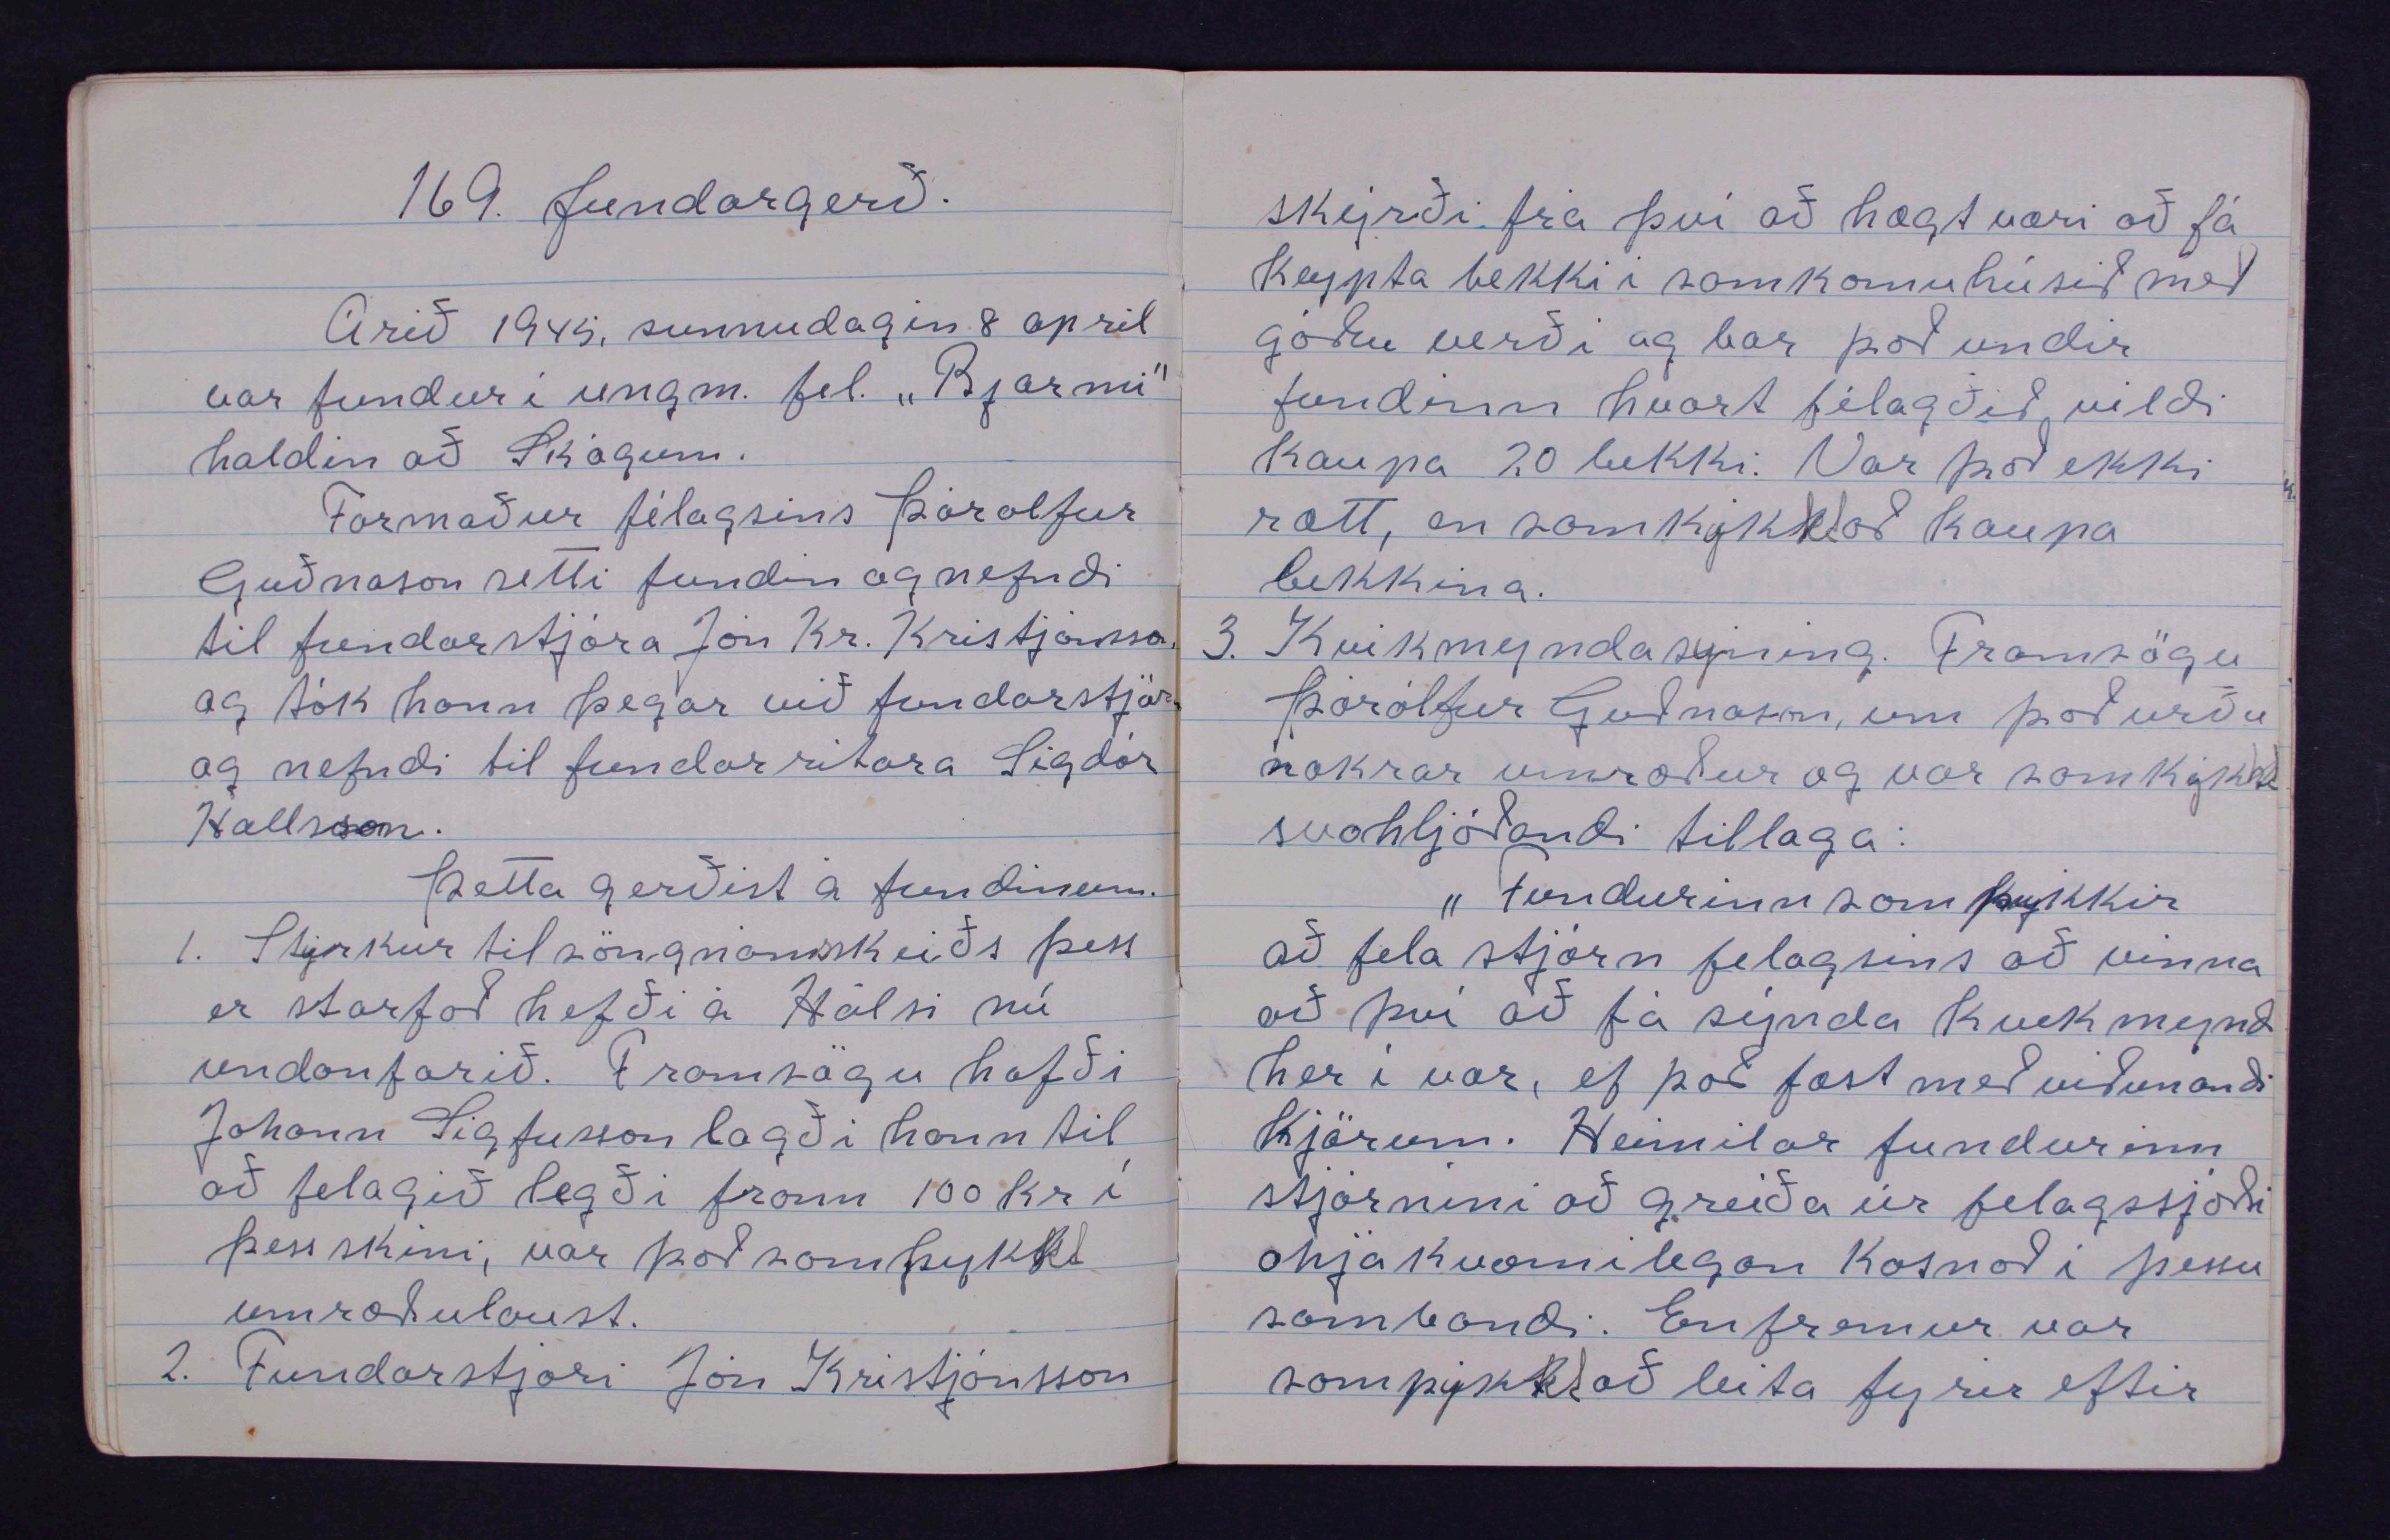 169. fundargerð.
Árið 1945, sunnudagin 8 april
var fundur í ungm. fel. „Bjarmi"
haldin að Skógum.
Formaður félagsins Þórolfur
Guðnason setti fundin og nefndi
til fundarstjóra Jón Kr. Kristjónsson
og tók hann þegar við fundarstjórn
og nefndi til fundarritara Sigdór
Hallsson.
Þetta gerðist á fundinum.
1. Styrkur til söngnamskeiðs þess
er starfað hefði á Hálsi nú
undanfarið. Framsögu hafði
Johann Sigfusson lagði hann til
að felagið legði fram 100 kr í
þess skini, var það samþykkt
umræðulaust.
2. Fundarstjori Jón Kristjónsson
skýrði frá því að hægt væri að fá
keypta bekki i samkomuhúsið með
góðu verði og bar það undir
fundinn hvort félagðið vildi
kaupa 20 bekki. Var það ekki
rætt, en samkykkt að kaupa
bekkina.
3. Kvikmyndasyning. Framsögu
Þórólfur Guðnason, um það urðu
nokrar umræður og var samkykkt
svohljóðandi tillaga:
„Fundurinn samþykkir
að fela stjórn felagsins að vinna
að því að fá sýnda kvekmynd
her í vor, ef það fæst með viðunandi
kjörum. Heimilar fundurinn
stjórnini að greiða úr felagssjóði
ohjákvæmilegan kosnað í þessu
sambandi. Enfremur var
sampykkt að leita fyrir eftir